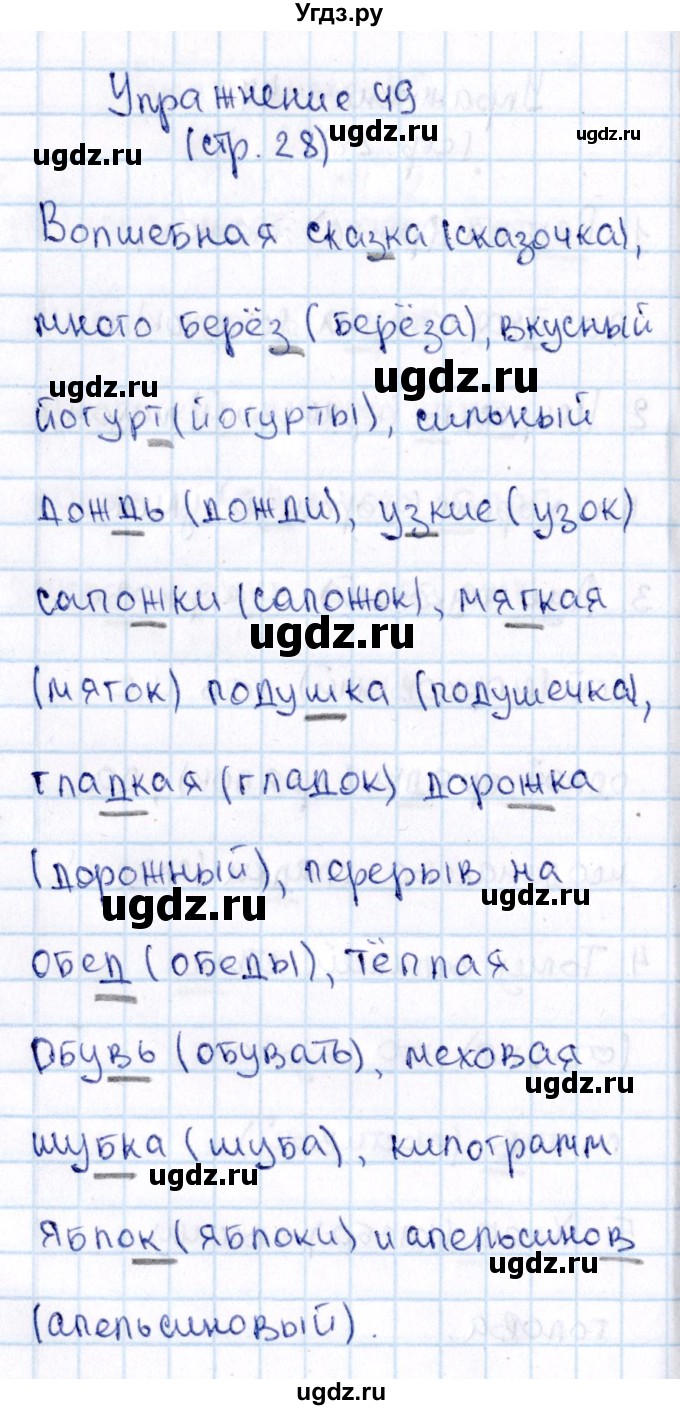 Угдз.ру
Упражнение 49
ugdz.ru (стр. 28) ugdz.ru ugdz.ru
Волшебная сказка (сказочка),
много берёз (берёза), вкусный
ugdz.ru ugdz.ru
йогурт (йогурты), сильный
дождь (дожди), узкие (узок)
сапожки (сапожок), мягкая
ugdz.ru
(мягок) подушка (подушечка),
гладкая (гладок) дорожка
(дорожный), перерыв на
ugdz.ru ugdz.ru
обед (обеды), тёплая
обувь (обувать), меховая
ugdz.ru
шубка (шуба), килограмм
ugdz.ru
яблок (яблоки) и апельсинов
ugdz.ru
(апельсиновый).
ugdz.ru